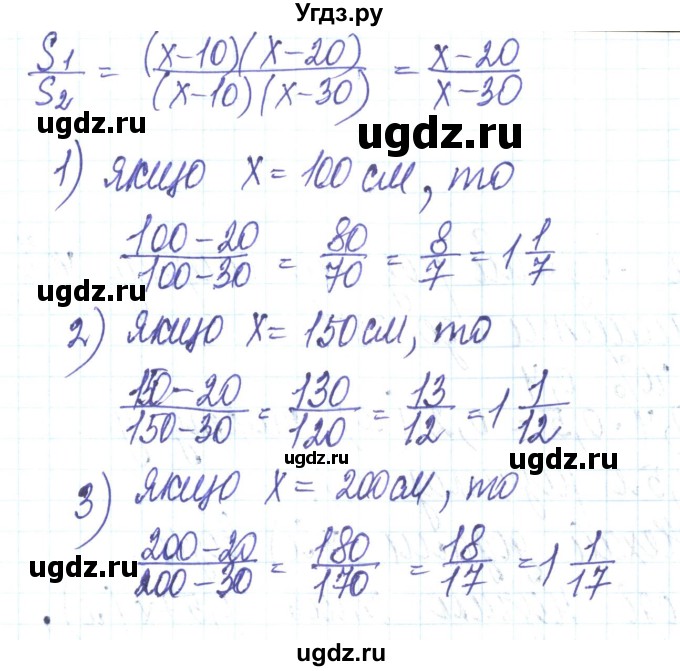 Угдз.ру
S1/S2 = (x-10)(x-20)/(x-10)(x-30) = x-20/x-30
ugdz.ru
ugdz.ru
1) якщо x=100см, то
100-20/100-30 = 80/70 = 8/7 = 1 1/7
ugdz.ru
ugdz.ru
2) якщо x=150см, то
150-20/150-30 = 130/120 = 13/12 = 1 1/12
ugdz.ru
ugdz.ru
3) якщо x=200см, то
200-20/200-30 = 180/170 = 18/17 = 1 1/17
ugdz.ru
ugdz.ru
ugdz.ru